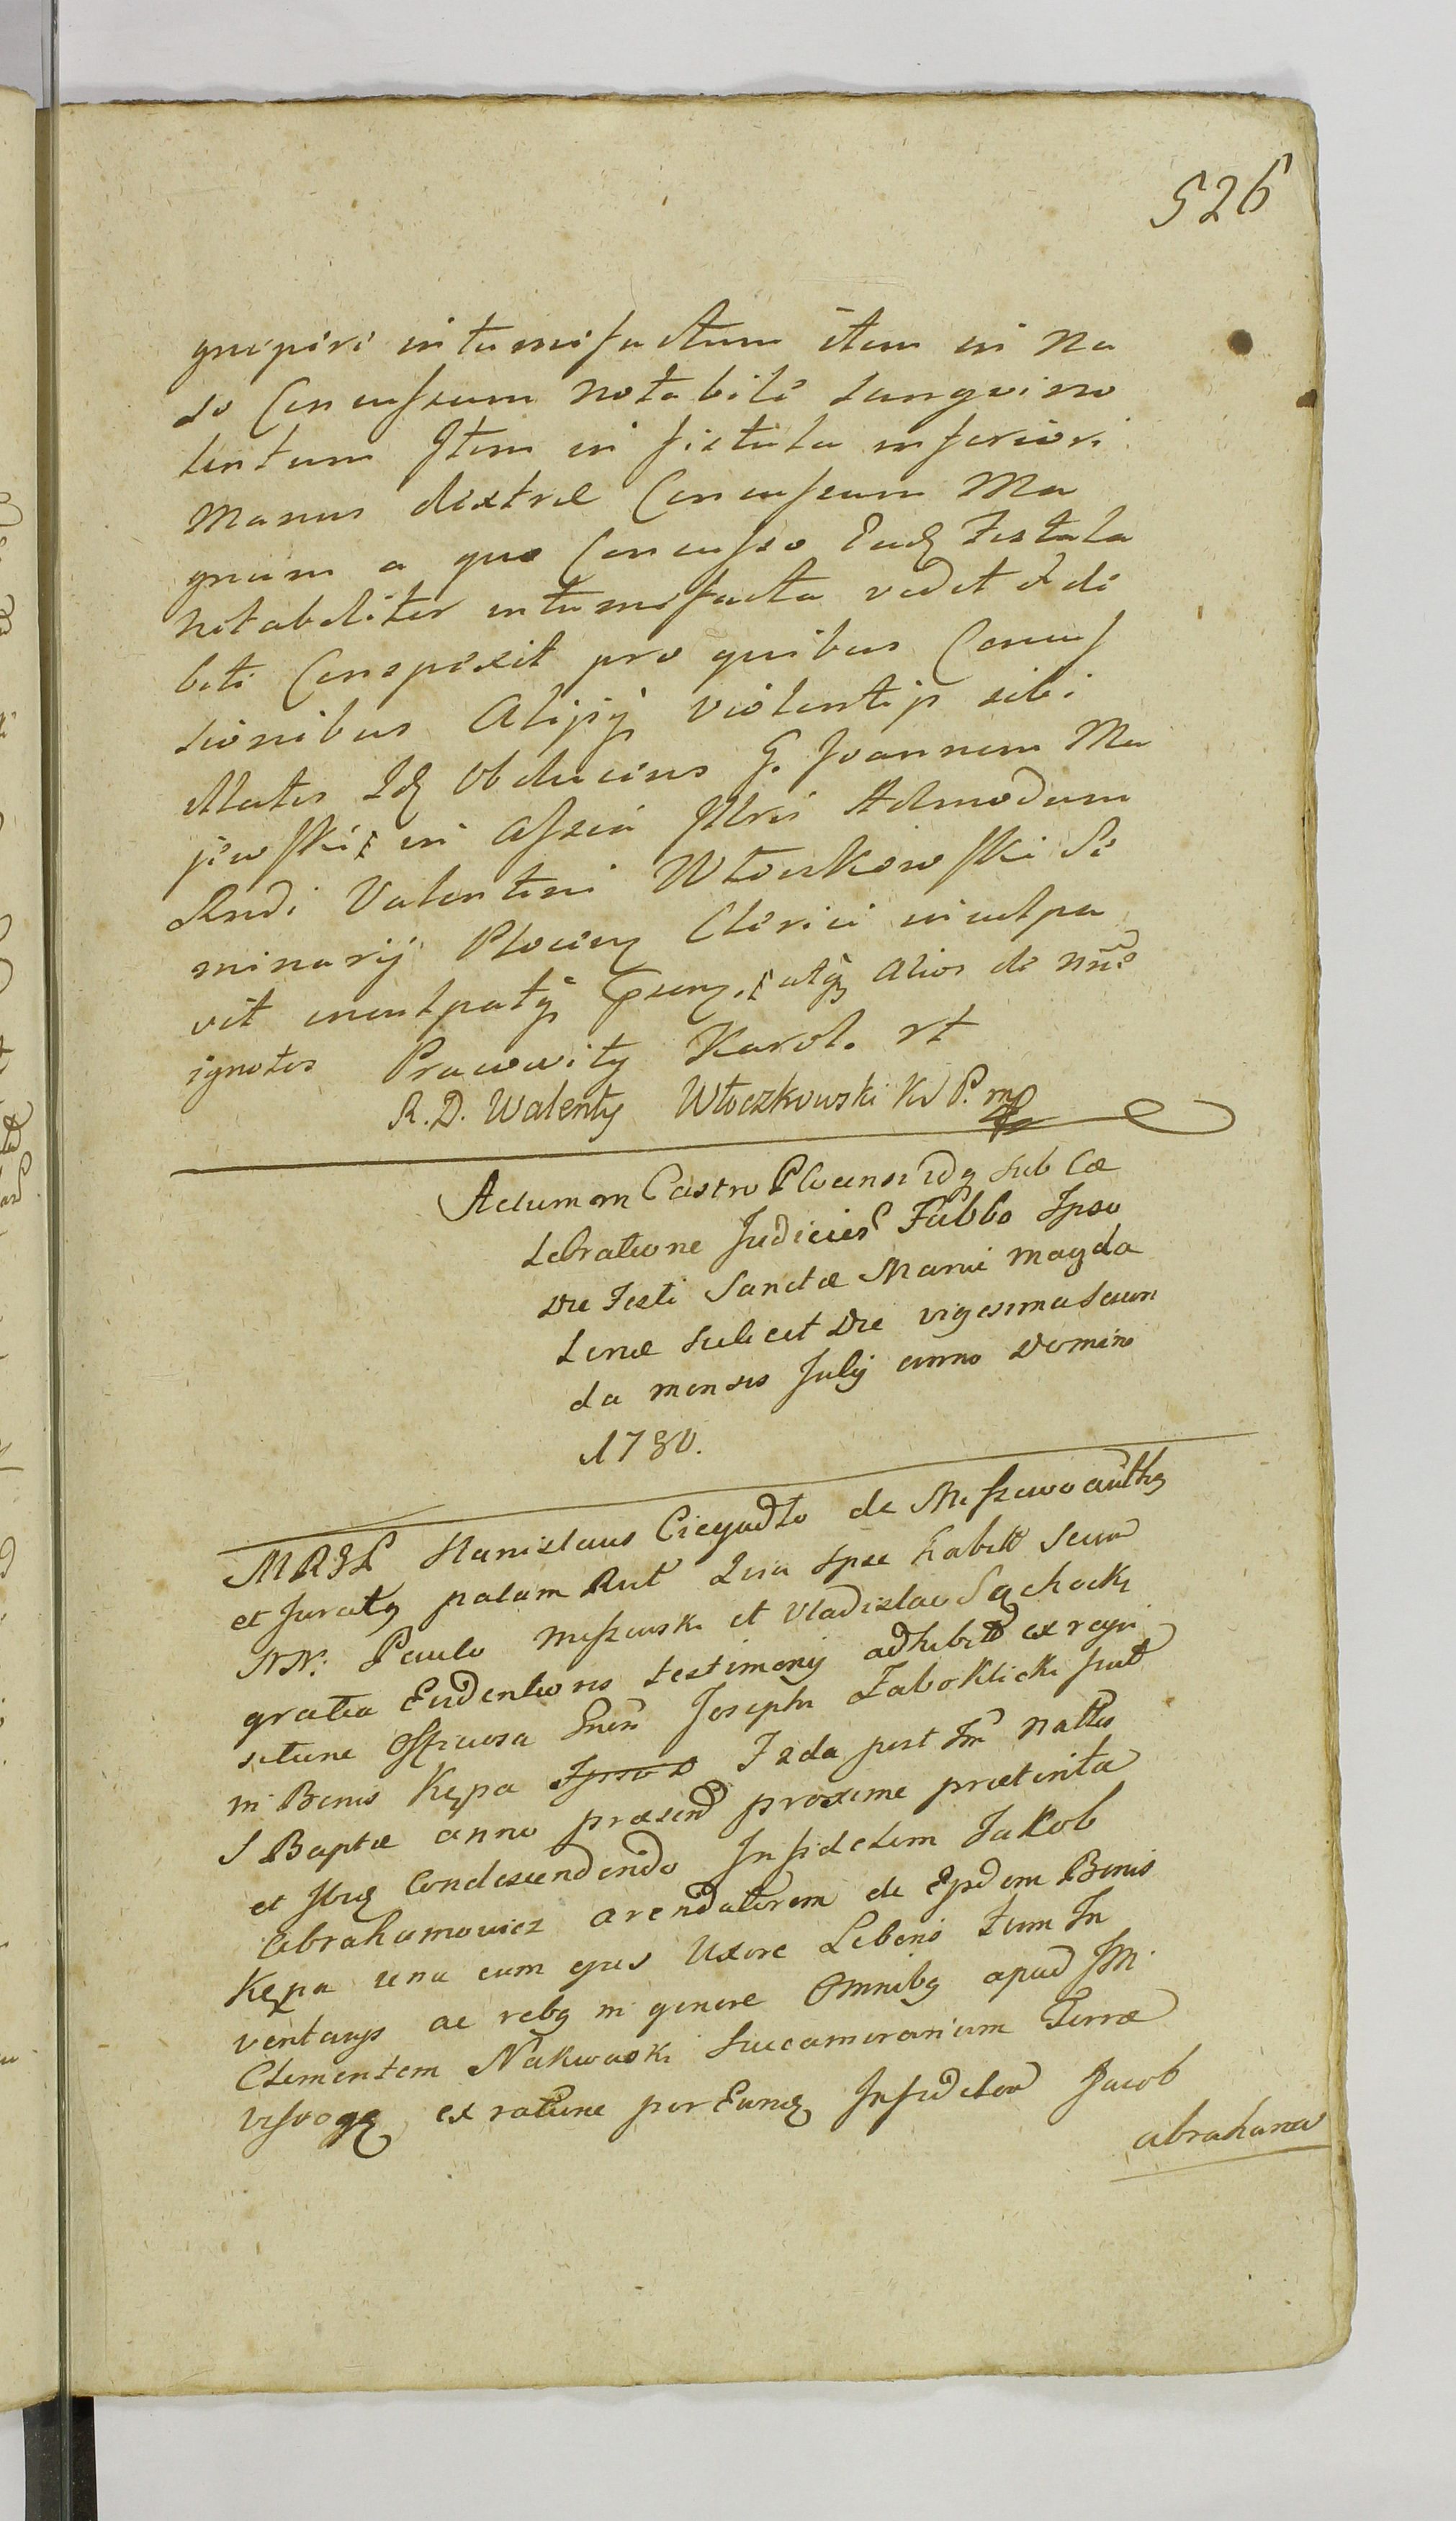 526
gnepiri intumefactum item in Na
so Concussum notabile sangvino
lentum Item in fistula inferiori
Manus dextræ Concussum Ma
gnum a quo Concusso Eadq Fistula
notabiliter intumefacta vidit et de
bite Conspexit pro quibus Concus
sionibus Alijsq violentijs sibi
illatis Idq Obducens G. Joannem Ma
jewski in Assia Illris Admodum
Rndi Valentini Włoczkowski Se
minarij Plocen Clerici inculpa
vit inculpatq atq alios de nne
ignotos Pracowity Karol. rt
R. D. Walenty Włoczkowski mp
Actum in Castro Plocensi idq sub Cæ
lebratione Judicior Fubbo Ipso
Die Festi Sanctæ Mariæ Magda
lenæ scilicet Die vigesima secun
da mensis Julij anno Domini
1780.
MRGL Stanislaus Ciegudło de Miszewo authq
et Juratq palam Rnt Quia Ipse habitt secum
NN: Paulo Miszewski et Vladislao Sąchocki
gratia Evidentioris testimonij adhibitt ex reqvi
sitione Officiosa Gnosi Josephi Zaboklicki fuit
in Bonis Kępa Ipso D Fzda post Fm Nattis
S Baptæ anno præsend proxime præterita
et Ibiq Condescendendo Infidelem Jakob
Abrahamowicz arendatorem de Ejsdem Bonis
Kępa una cum ejus Uxore Liberis tum In
ventarys ac rebq in genere Omnibq apud JM.
Clementem Nakwaski Succamerarium Terræ
Visvogq ex ratione per Eundq Infidelem Jacob
abrahamo